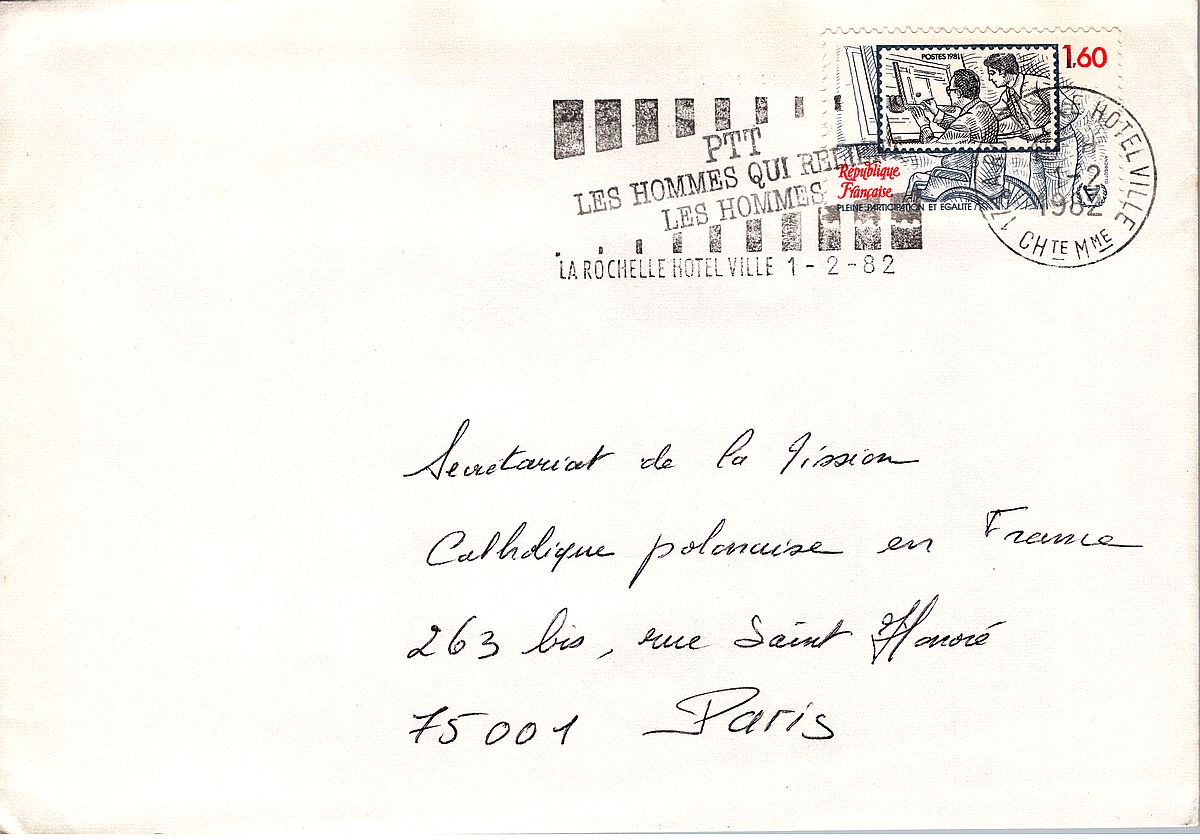 POSTES 1981
1,60
PTT
LES HOMMES QUI RELIENT
LES HOMMES
République
Française
PLEINE PARTICIPATION ET EGALITE
LA ROCHELLE HOTEL VILLE 1-2-82
HOTEL VILLE
1-2
1982
17 CHTE MME
Secrétariat de la Mission
Catholique polonaise en France
263 bis, rue Saint Honoré
75001 Paris